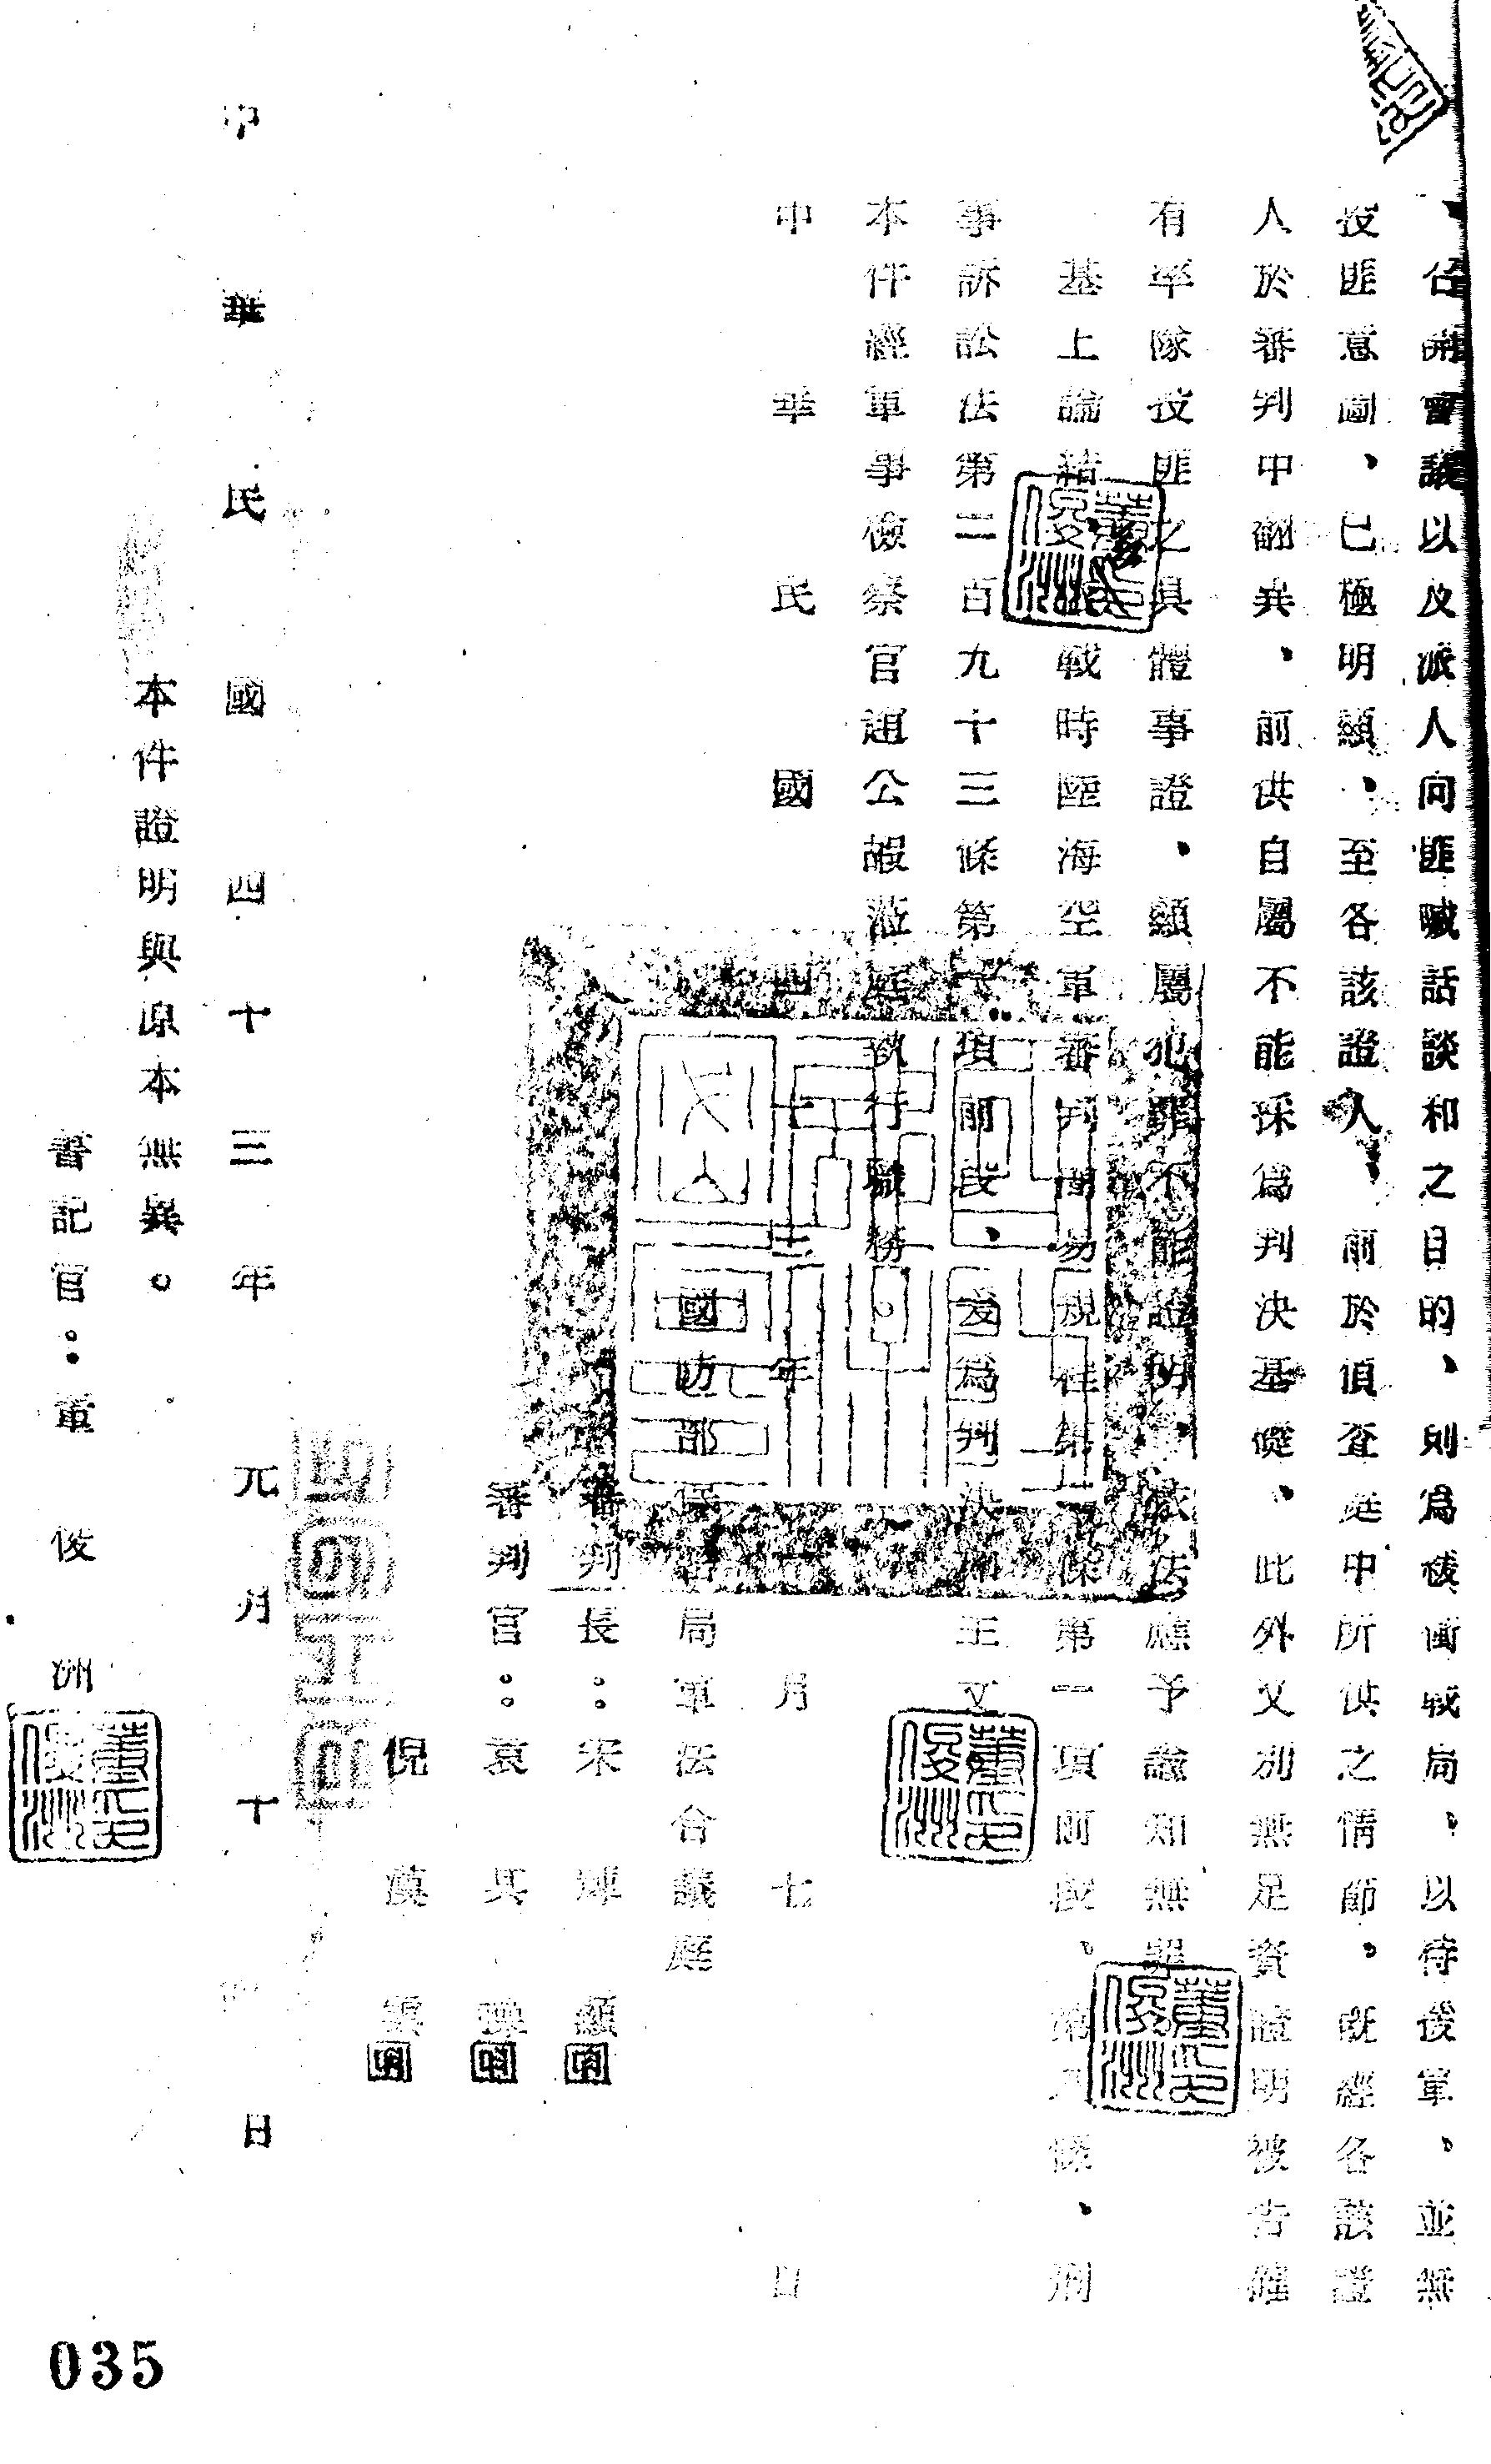 、召開會議以及派人向匪喊話談和之目的、則爲緩衝戰局、以待後軍、並無
投匪意圖、已極明顯、至各該證人前於偵查庭中所供之情節。既經各該證
人於審判中翻異、前供自屬不能採爲判決基礎、此外又別無足資證明被告確
有率隊投匪之具體事證、顯屬犯罪不能證明、應予諭知無罪
基上論結 戰時陸海空軍審判簡易規程第 條第一項前段、第 條、刑
事訴訟法第二百九十三條第一項前段、爰爲判決如主文
本件經軍事檢察官趙公嘏蒞庭執行職務。
中華民國四十三年 月七日
國防部保密局軍法合議庭
審判長：宋 顯
審判官：袁
倪
中華民國四十三年元月十 日
本件證明與原本無異。
書記官：董俊洲
董俊洲印
董俊洲印
董俊洲印
董俊洲印
035